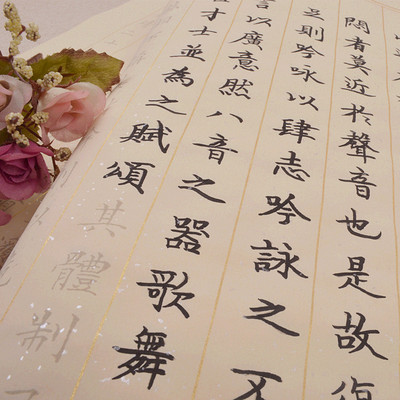 悶者莫近於聲音也是故復
足則吟咏以肆志吟詠之不
言以廣意然八音之器歌舞
才士並為之賦頌
其體制